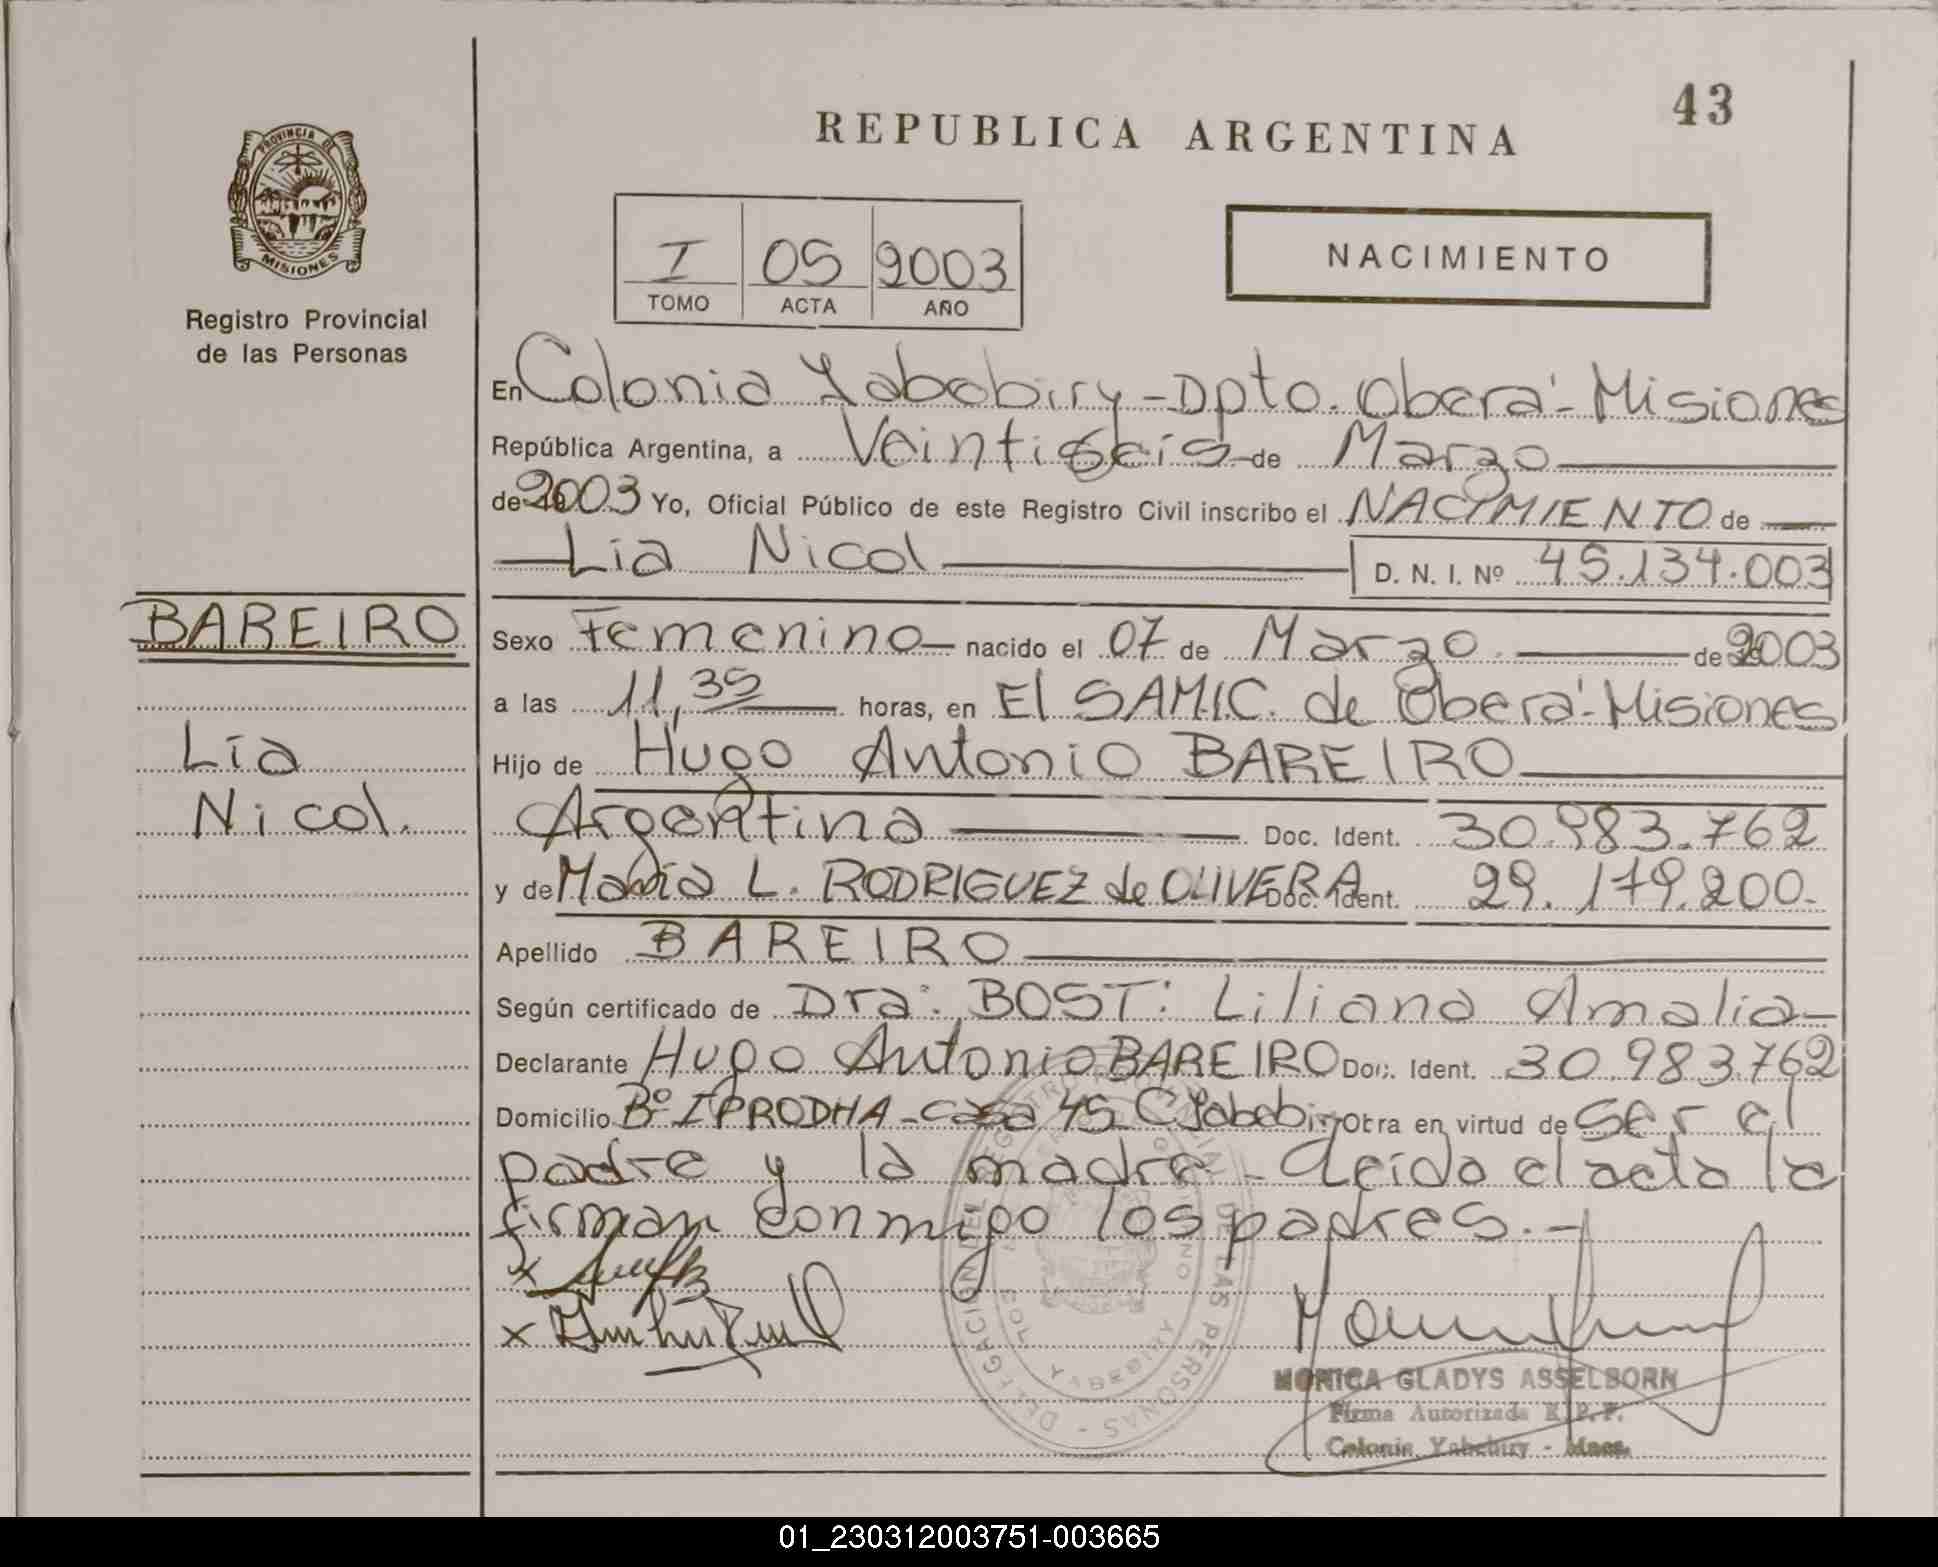 43
REPUBLICA ARGENTINA
PROVINCIA DE
MISIONES
Registro Provincial
de las Personas
I 05 2003
TOMO ACTA AÑO
NACIMIENTO
En Colonia Yabebiry - Dpto. Oberá - Misiones
República Argentina, a Veintiseis de Marzo
de 2003 Yo, Oficial Público de este Registro Civil inscribo el NACIMIENTO de
Lia Nicol D. N. I. Nº 45.134.003
BAREIRO
Lia
Nicol.
Sexo Femenino nacido el 07 de Marzo de 2003
a las 11,35 horas, en El SAMIC. de Oberá - Misiones
Hijo de Hugo Antonio BAREIRO
Argentina Doc. Ident. 30.983.762
y de Maria L. RODRIGUEZ de OLIVERA Doc. Ident. 29.179.200.
Apellido BAREIRO
Según certificado de Dra: BOST: Liliana Amalia
Declarante Hugo Antonio BAREIRO Doc. Ident. 30.983.762
Domicilio Bº IPRODHA - casa 45 C Yabebiry Obra en virtud de ser el
padre y la madre - Leido el acta la
firman conmigo los padres. -
DELEGACION DEL REGISTRO PROVINCIAL DE LAS PERSONAS
YABEBIRY
MONICA GLADYS ASSELBORN
Firma Autorizada R.P.P.
Colonia Yabebiry - Mnes.
01_230312003751-003665